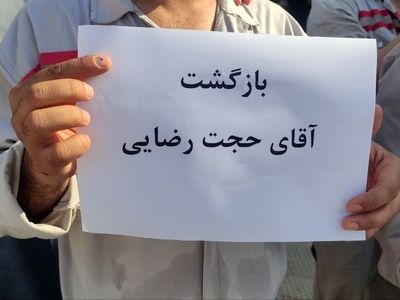 بازگشت
آقای حجت رضایی